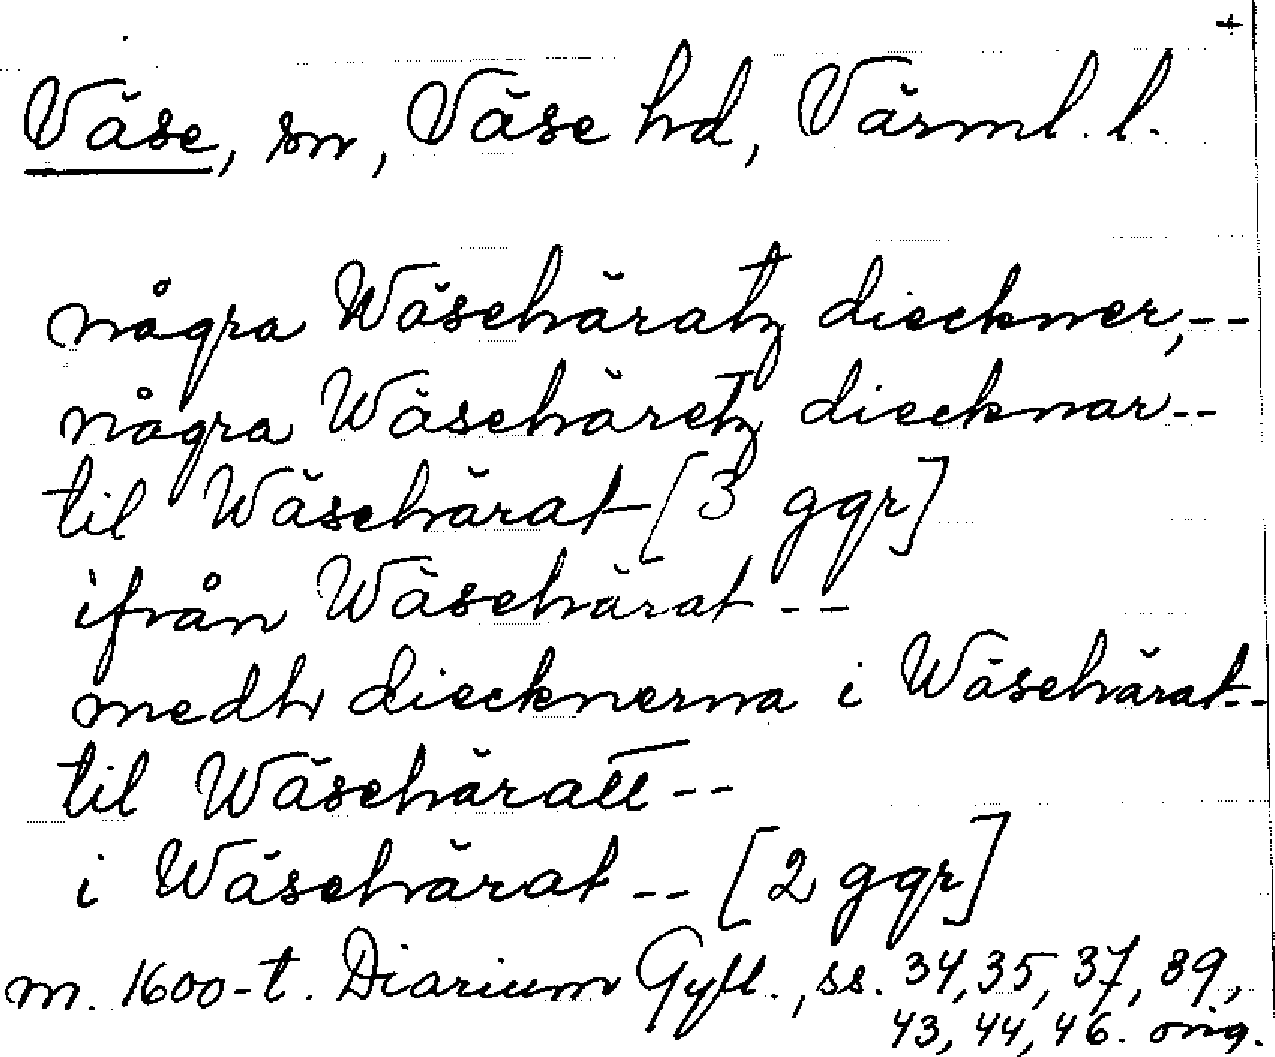 +
Väse, sn, Väse hd, Värml. l.
några Wäsehäratz dieckner, --
några Wäsehäretz diecknar --
til Wäsehärat [3 ggr]
ifrån Wäsehärat --
medh diecknerna i Wäsehärat --
til Wäsehäratt --
i Wäsehärat -- [2 ggr]
m. 1600-t. Diarium Gyll., ss. 34, 35, 37, 39,
43, 44, 46. orig.